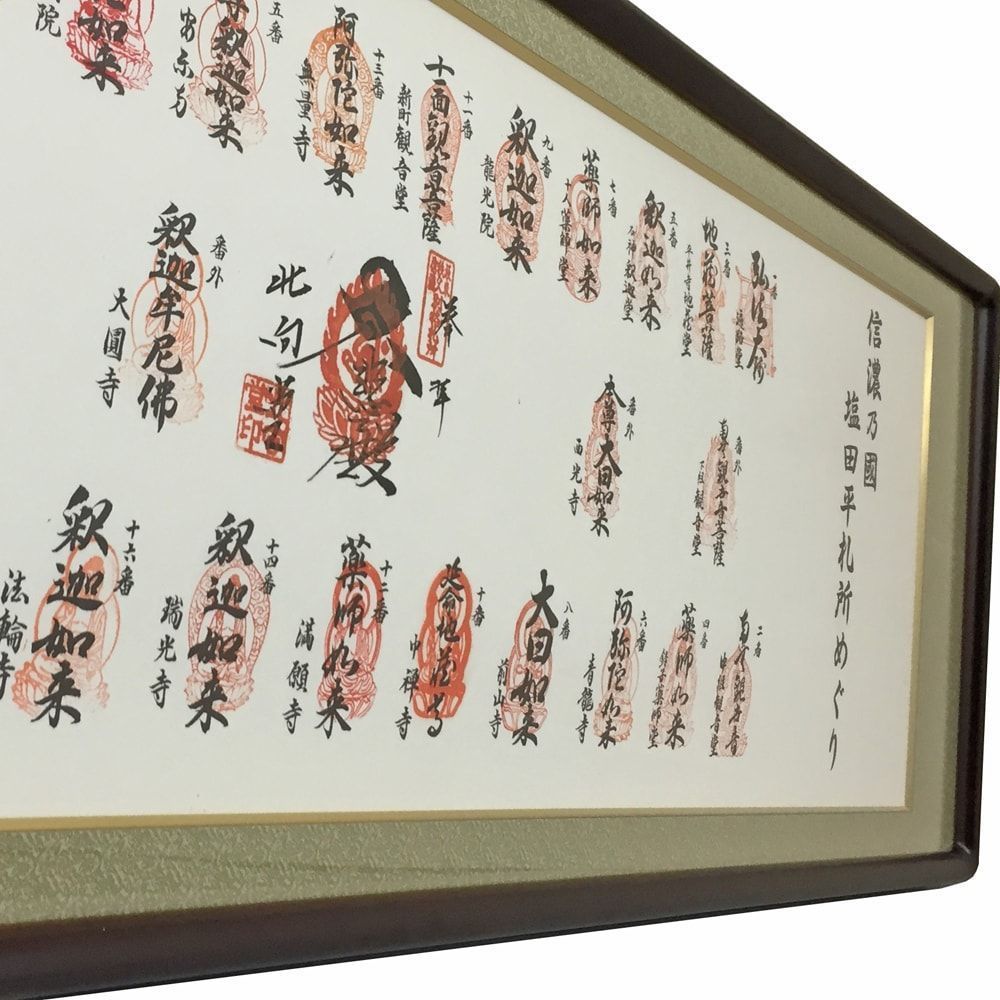 信濃乃國
塩田平札所めぐり
弘法大師
遍路堂
三番
地蔵菩薩
平井寺地蔵堂
五番
釈迦如来
釈迦堂
七番
薬師如来
薬師堂
九番
釈迦如来
龍光院
十一番
十一面観音菩薩
新町観音堂
十三番
阿弥陀如来
無量寺
五番
釈迦如来
安楽寺
如来
院
番外
観音菩薩
観音堂
番外
本尊大日如来
西光寺
奉
拝
北向
番外
釈迦牟尼佛
大圓寺
二番
観音堂
四番
薬師如来
薬師堂
六番
阿弥陀如来
青龍寺
八番
大日如来
前山寺
十番
延命地蔵尊
中禅寺
十二番
薬師如来
満願寺
十四番
釈迦如来
瑞光寺
十六番
釈迦如来
法輪寺